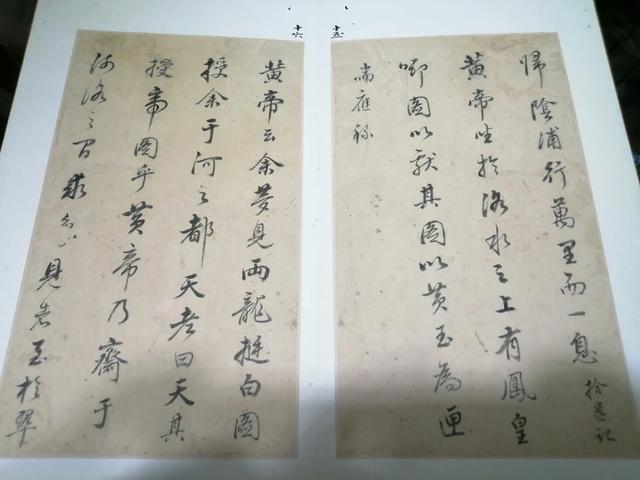 十五
歸陰浦行萬里而一息 拾遺記
黃帝坐於洛水之上有鳳皇
啣圖以獻其圖以黃玉為匣
尚應
十六
黃帝云余夢見兩龍挺白圖
授余于河之都天老曰天其
授帝圖乎黃帝乃齋于
河洛之間求 見者至於翠